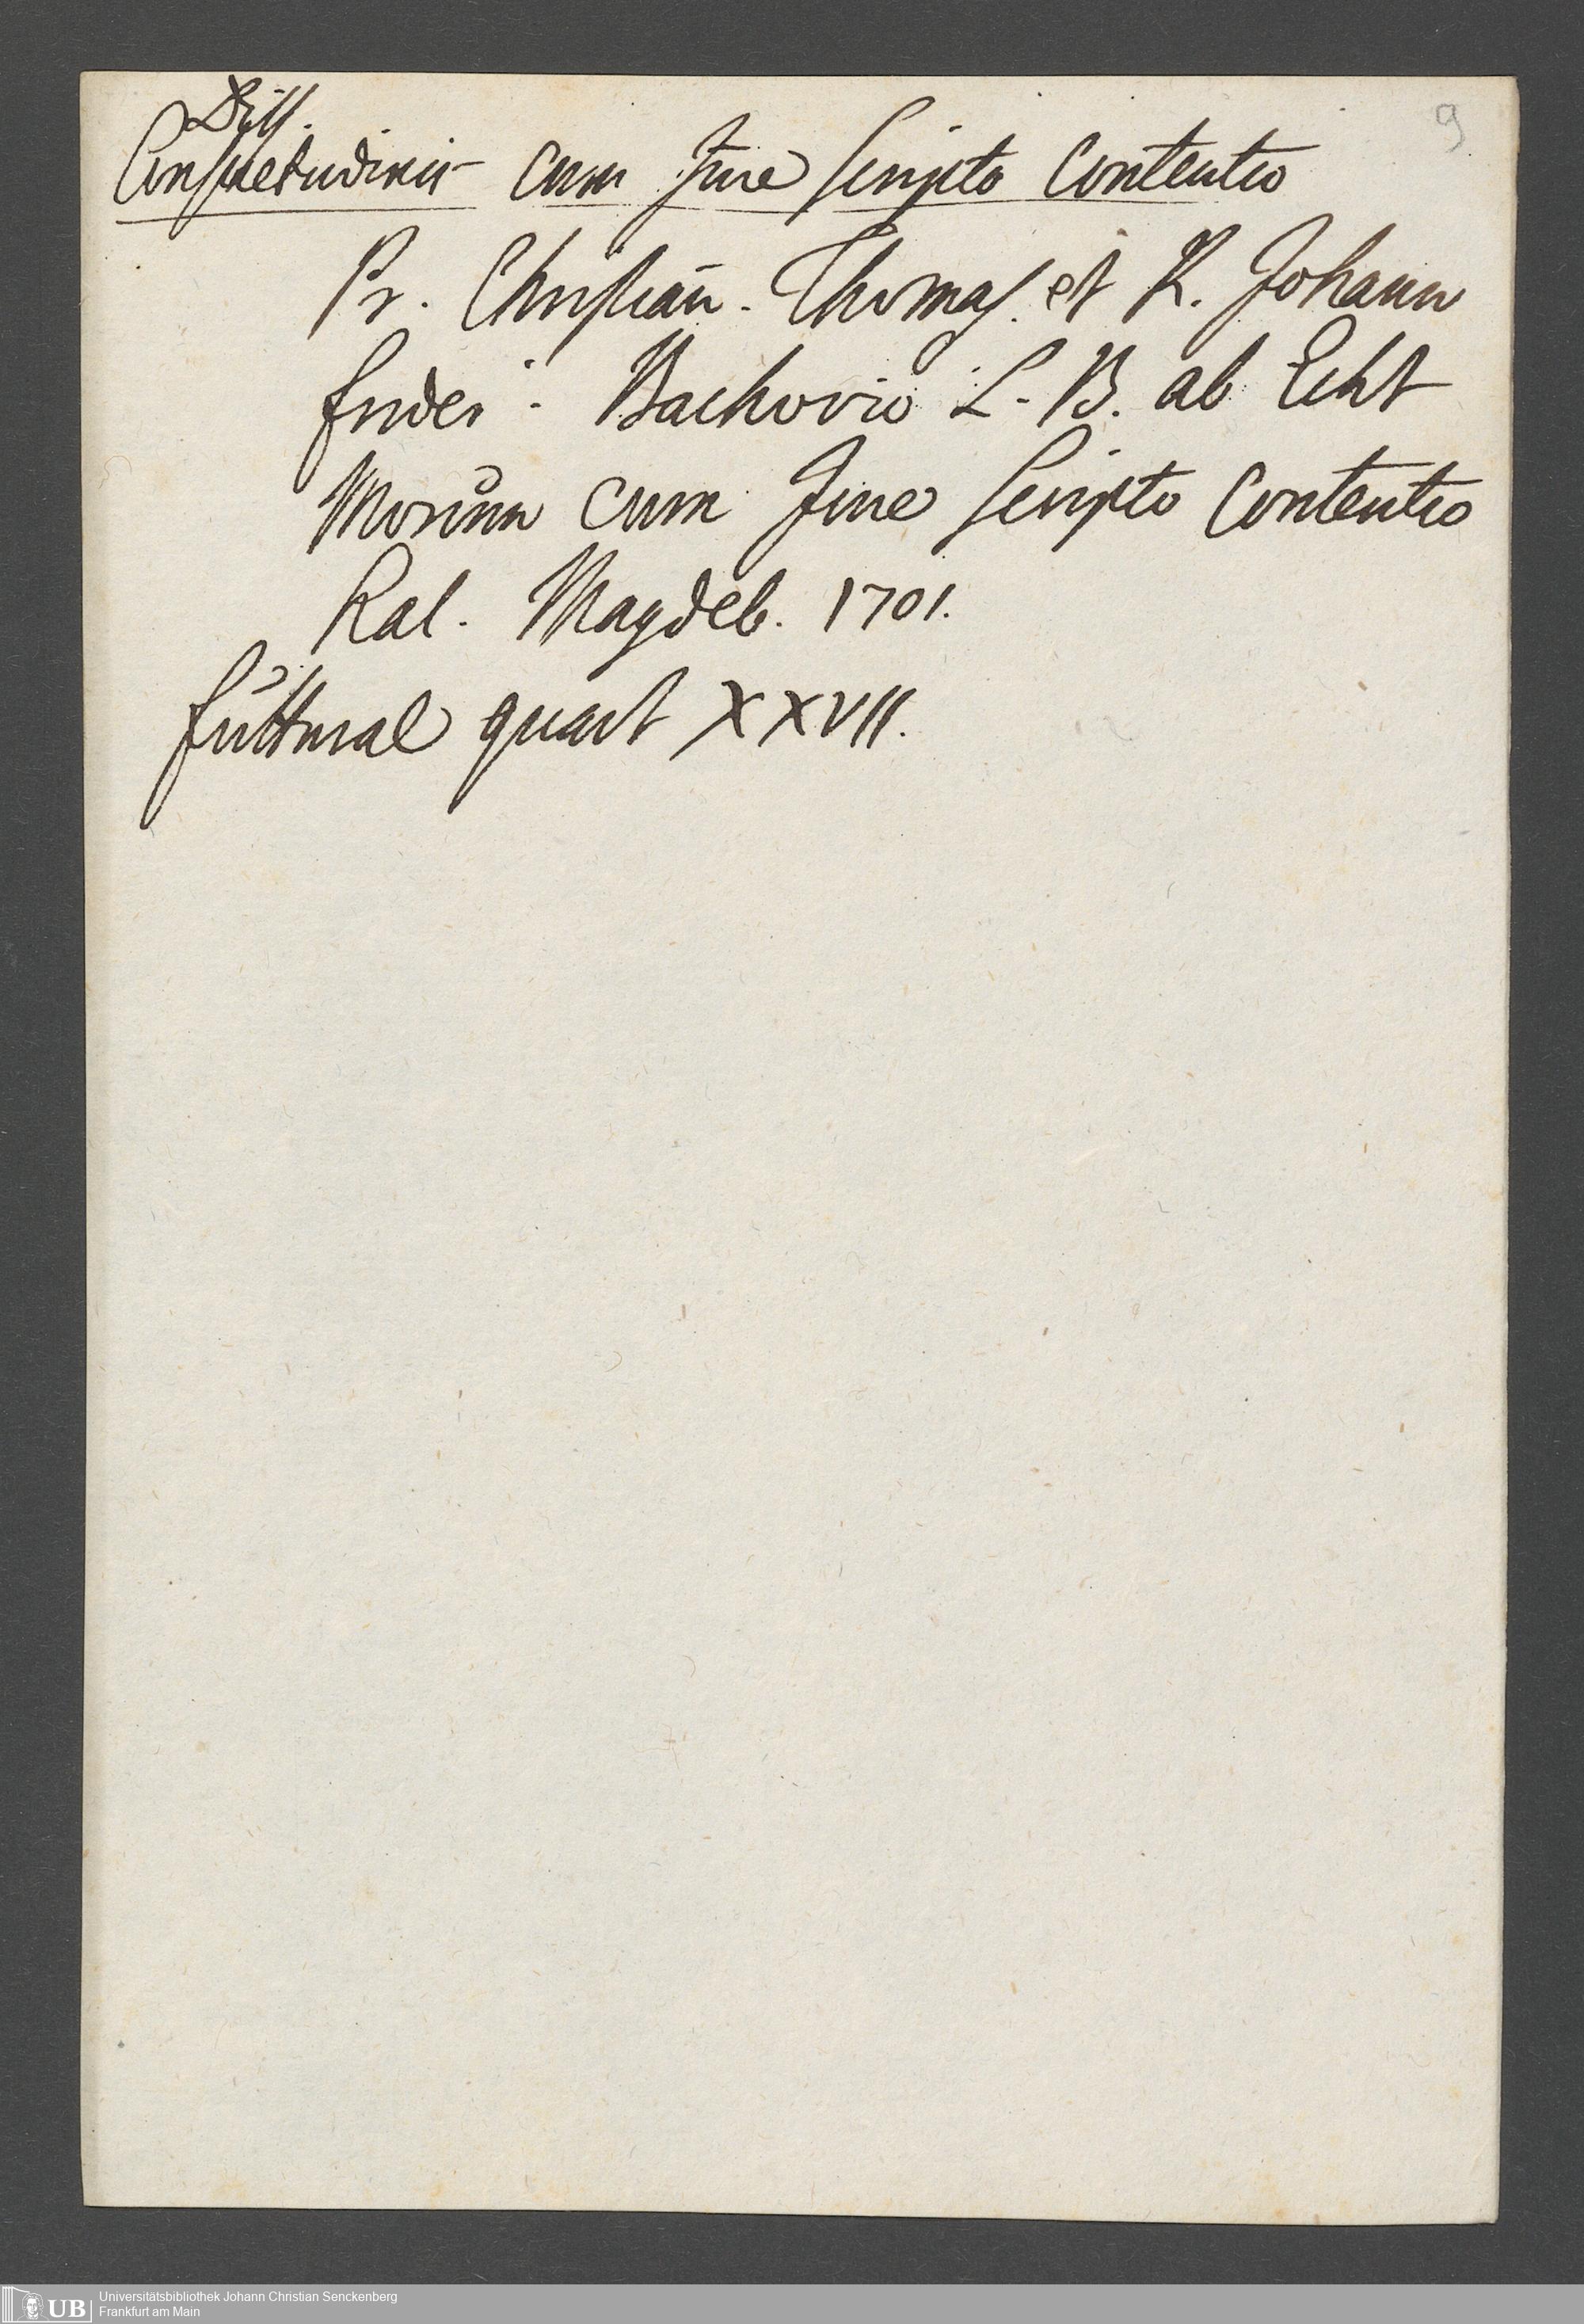 Diss.
9
Consuetudinis cum Jure scripto Contentio
Pr. Christian. Thomas. et R. Johann
frider. Bachovio L. B. ab Echt
Morum cum Jure scripto Contentio
Hal. Magdeb. 1701.
quart XXVII.
UB Universitätsbibliothek Johann Christian Senckenberg
Frankfurt am Main